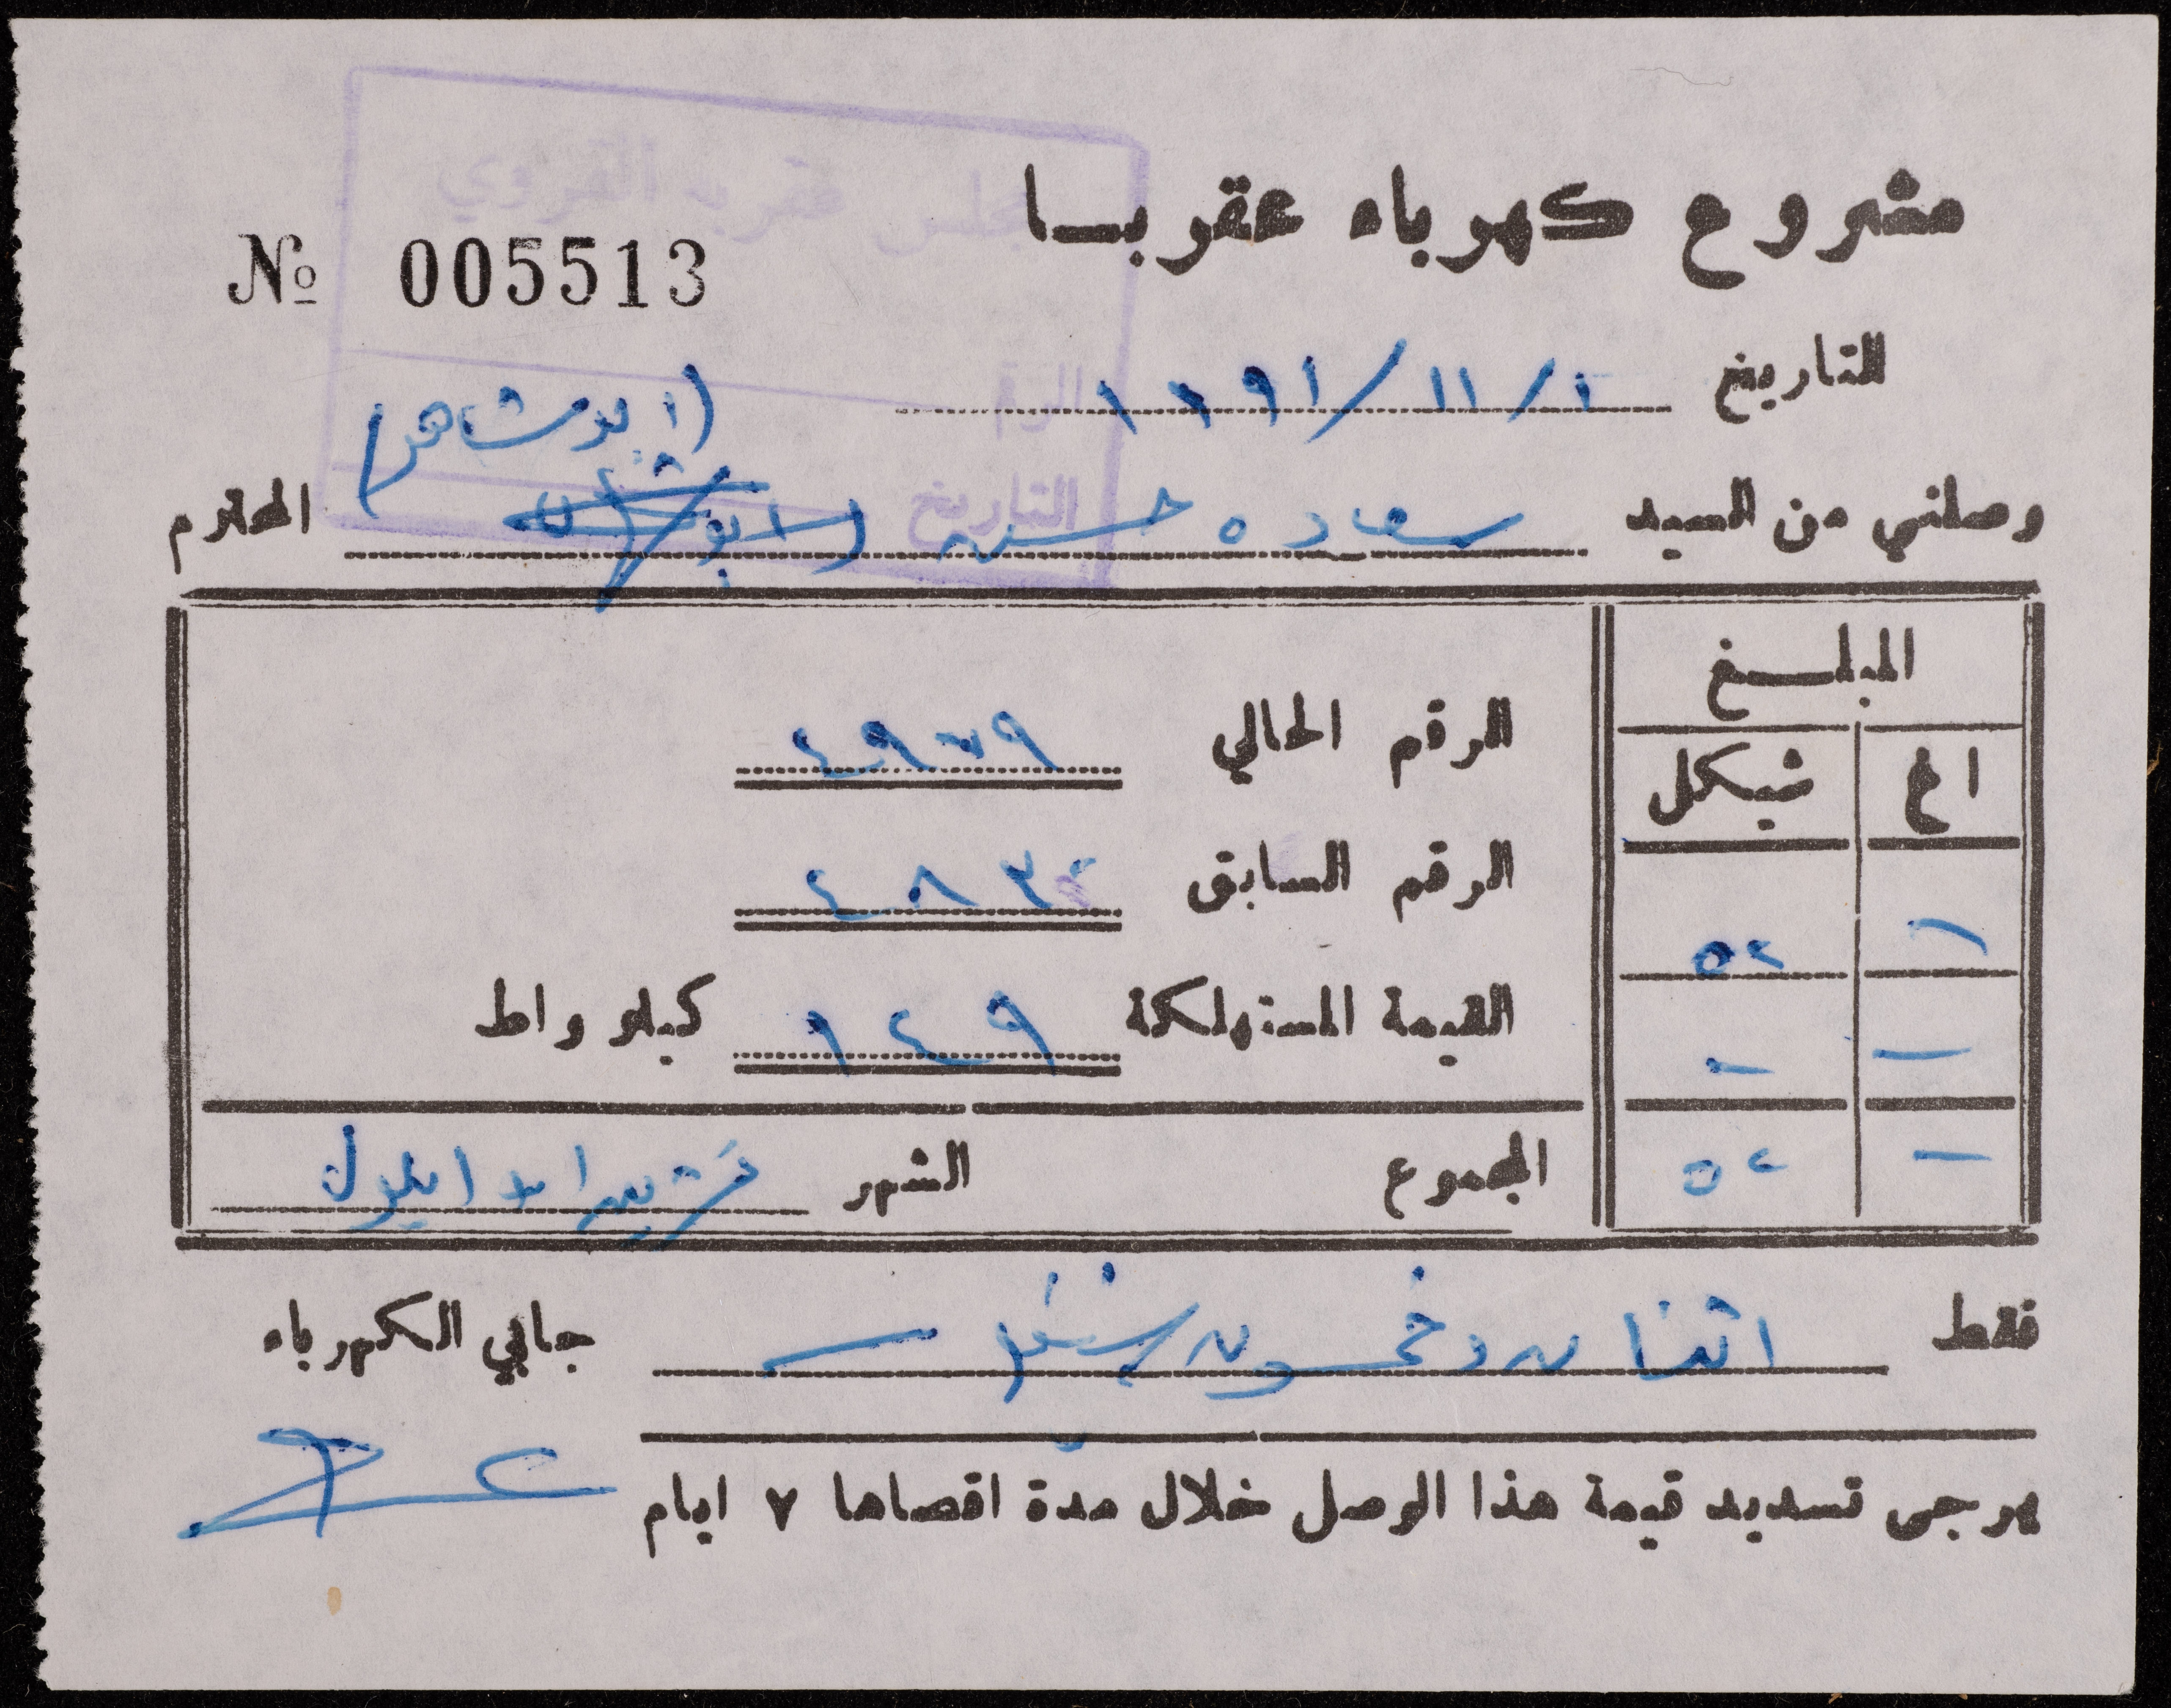 مجلس عقربه القروي
مشروع كهرباء عقربا
№ 005513
الرقم
التاريخ ١ / ١١ / ١٩٩١
(ابو شاهر)
التاريخ
وصلني من السيد سعاده حسن (ابو المحترم
المبلغ
اغ شيكل
الرقم الحالي ٤٩٧٩
الرقم السابق ٤٨٣٠
— ٥٢
القيمة المستهلكة ١٤٩ كيلو واط
— —
— ٥٢ المجموع الشهر ايلول
فقط اثنان وخمسون شيكل جابي الكهرباء
يرجى تسديد قيمة هذا الوصل خلال مدة اقصاها ٧ ايام